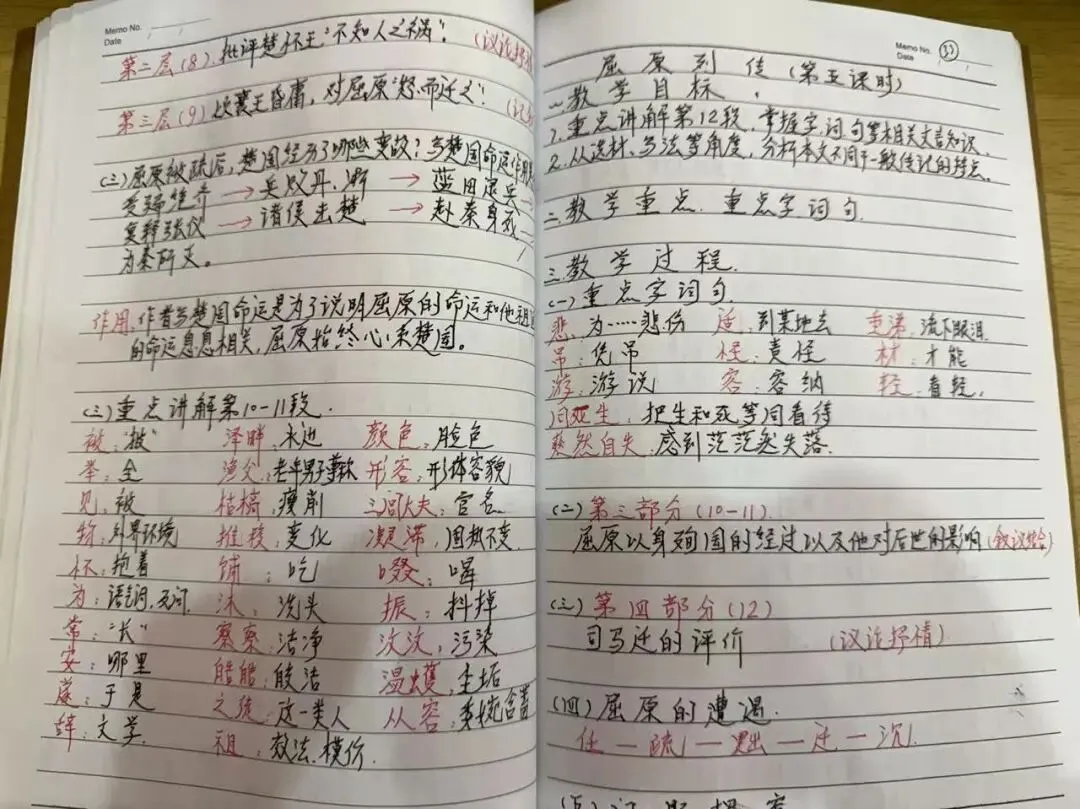 Memo No.
Date
第二层(8)批评楚怀王"不知人之祸"。(议论抒
第三层(9)顷襄王昏庸,对屈原"怒而迁之"。(记
(二)屈原被疏后,楚国经历了哪些变故?写楚国命运作用是
受骗绝齐 → 兵败丹、淅 → 蓝田退兵
复释张仪 → 诸侯击楚 → 赴秦身死
为秦所灭。
作用:作者写楚国命运是为了说明屈原的命运和他祖国
的命运息息相关,屈原始终心系楚国。
(三)重点讲解第10-11段.
被:"披" 泽畔:水边 颜色:脸色
举:全 渔父:老年男子尊称 形容:形体容貌
见:被 枯槁:瘦削 三闾大夫:官名
物:外界环境 推移:变化 凝滞:固执不变
怀:抱着 铺:吃 啜:喝
为:语气词,反问 沐:洗头 振:抖掉
常:"长" 察察:洁净 汶汶:污染
安:哪里 皓皓:皎洁 温蠖:尘垢
遂:于是 之徒:这一类人 从容:委婉含蓄
辞:文学 祖:效法、模仿
Memo No. 33
Date
屈原列传(第五课时)
一、教学目标.
1.重点讲解第12段,掌握字、词、句等相关文言知识.
2.从选材、写法等角度,分析本文不同于一般传记的特点。
二、教学重点:重点字词句
三、教学过程.
(一)重点字词句
悲:为……悲伤 适:到某地去 垂涕:流下眼泪
吊:凭吊 怪:责怪 材:才能
游:游说 容:容纳 轻:看轻
同死生:把生和死等同看待
爽然自失:感到茫茫然失落
(二)第三部分(10-11)
屈原以身殉国的经过以及他对后世的影响(叙议结合)
(三)第四部分(12)
司马迁的评价 (议论抒情)
(四)屈原的遭遇.
任—疏—黜—迁—沉